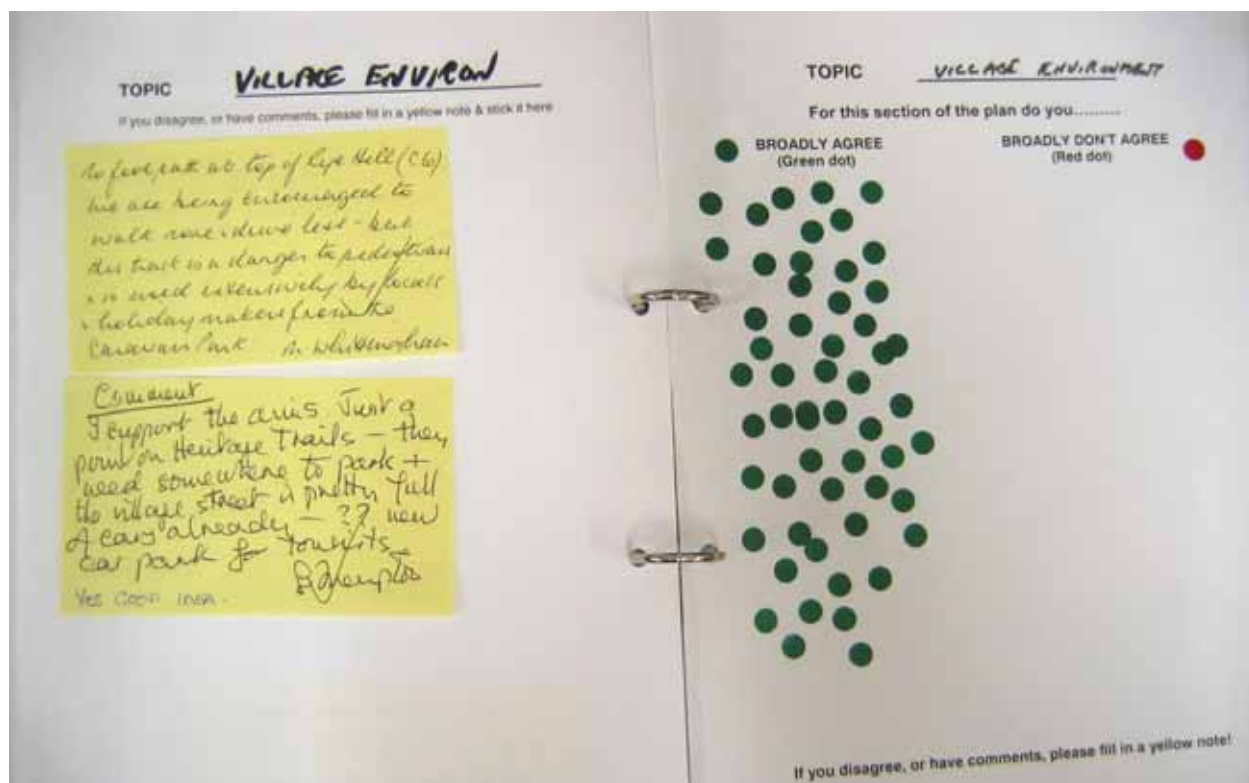 TOPIC VILLAGE ENVIRON
If you disagree, or have comments, please fill in a yellow note & stick it here
at top of Hill (C6)
We are being encouraged to
walk more + drive less - but
this track is a danger to pedestrians
+ is used extensively by locals
+ holiday makers from the
Caravan Park
Comment
I support the aims. Just a
point on Heritage Trails - they
need somewhere to park +
the village street is pretty full
of cars already - ?? new
car park for tourists
YES GOOD IDEA.
TOPIC VILLAGE ENVIRONMENT
For this section of the plan do you.........
BROADLY AGREE
(Green dot)
BROADLY DON'T AGREE
(Red dot)
If you disagree, or have comments, please fill in a yellow note!